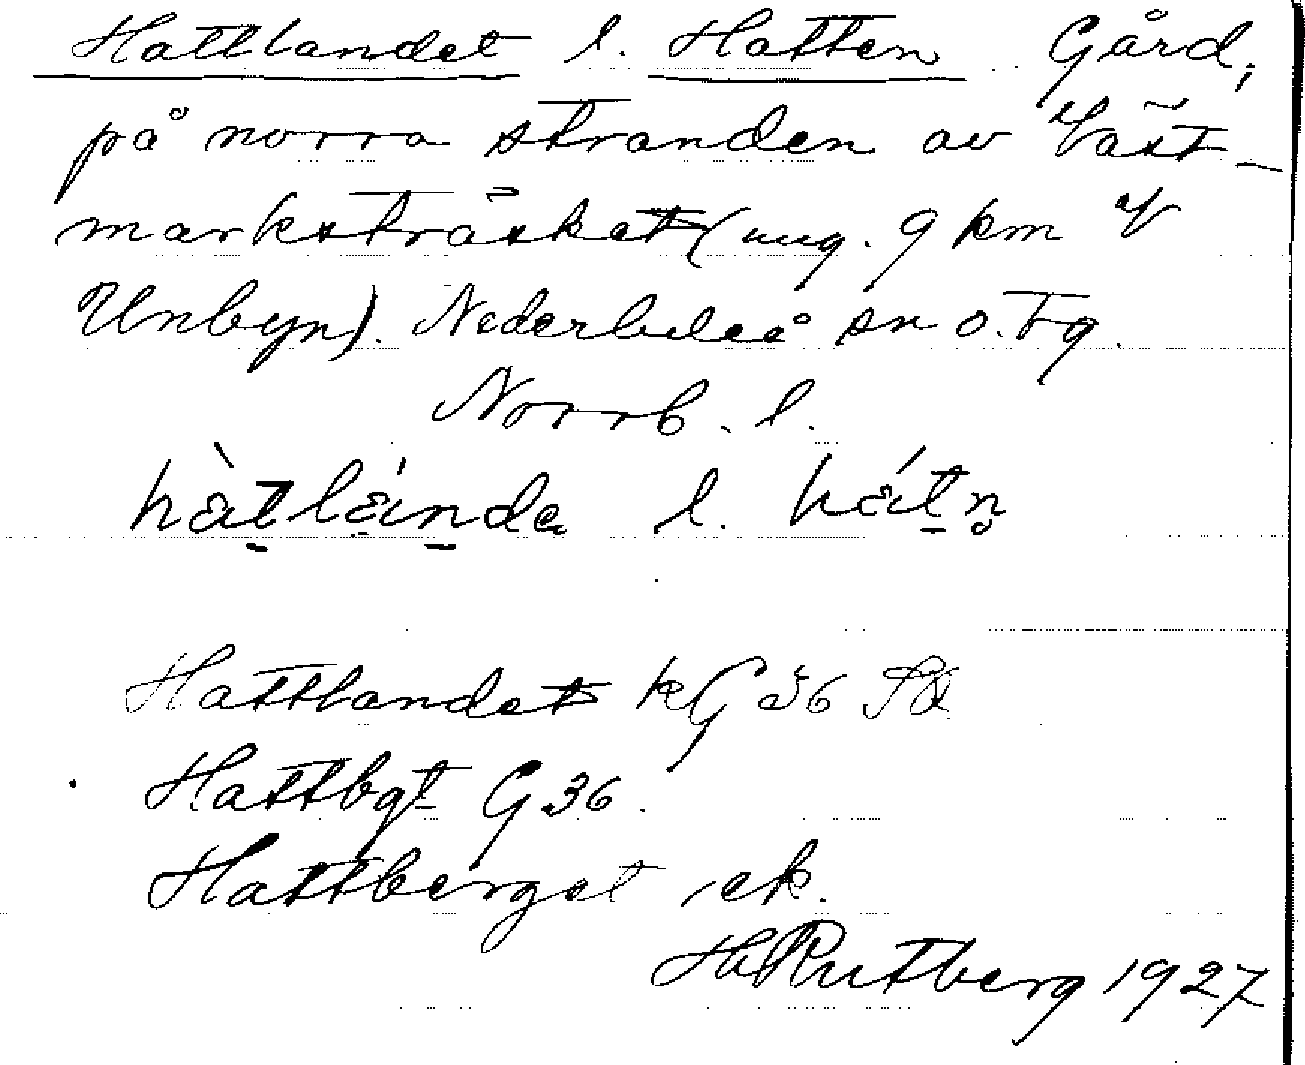 Hattlandet l. Hatten Gård,
på norra stranden av Väst-
marksträsket (ung. 9 km V
Unbyn). Nederluleå sn o. Tg.
Norrb. l.
hàtlánda l. hátn̥
Hattlandet kG 36 SO
Hattbgt G 36.
Hattberget, ek.
H Rutberg 1927